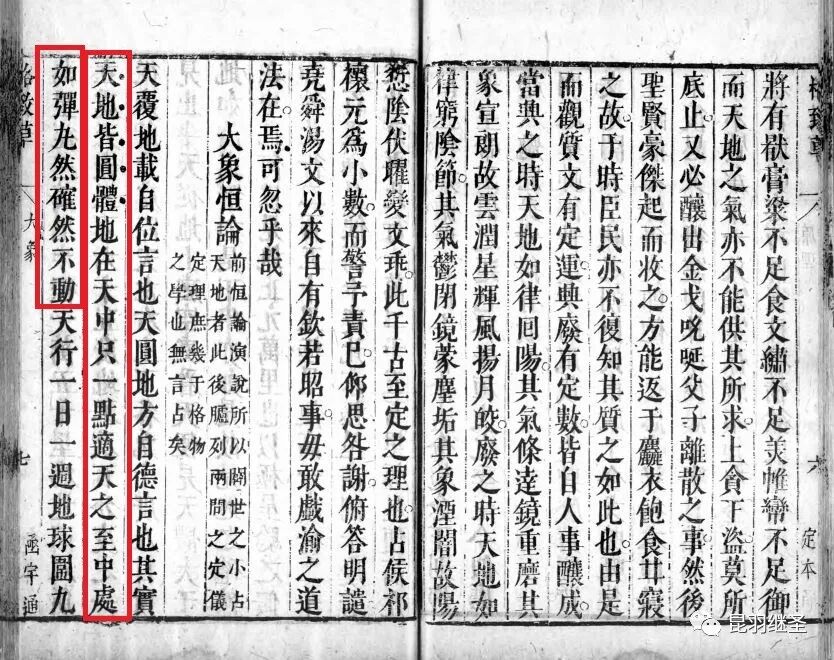 格致草
六
定本
將有獄膏粱不足食文繡不足美帷巒不足御
而天地之氣亦不能供其所求上貪下盜莫所
底止又必釀出金戈咣咝父子離散之事然後
聖賢豪傑起而收之方能返于麤衣飽食甘寢
之故于時臣民亦不復知其質之如此也由是
而觀質文有定運興廢有定數皆自人事釀成
當興之時天地如律回陽其氣條達鏡重磨其
象宣朗故雲潤星輝風揚月皎廢之時天地如
律窮陰節其氣鬱閉鏡蒙塵垢其象湮闇故陽
愆陰伏曜變文乖此千古至定之理也占侯祁
禳元為小數而警予責巳仰思咎謝俯答明譴
堯舜湯文以來自有欽若昭事毋敢戲渝之道
法在焉可忽乎哉
大象恒論
前恒論演說所以闢世之小占
天地者此後臚列兩間之定儀
定理庶幾于格物
之學也無言占矣
天覆地載自位言也天圓地方自德言也其實
天地皆圓體地在天中只一點適天之至中處
如彈丸然確然不動天行一日一週地球圖九
格致草
大象
七
函宇通
昆羽继圣